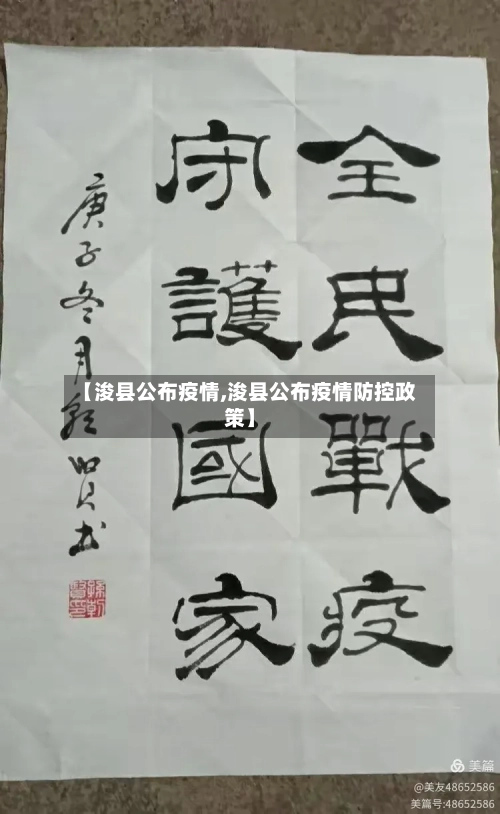 全民戰疫
守護國家
庚子冬月
賢书
【浚县公布疫情,浚县公布疫情防控政
策】
美篇
@美友48652586
美篇号:48652586